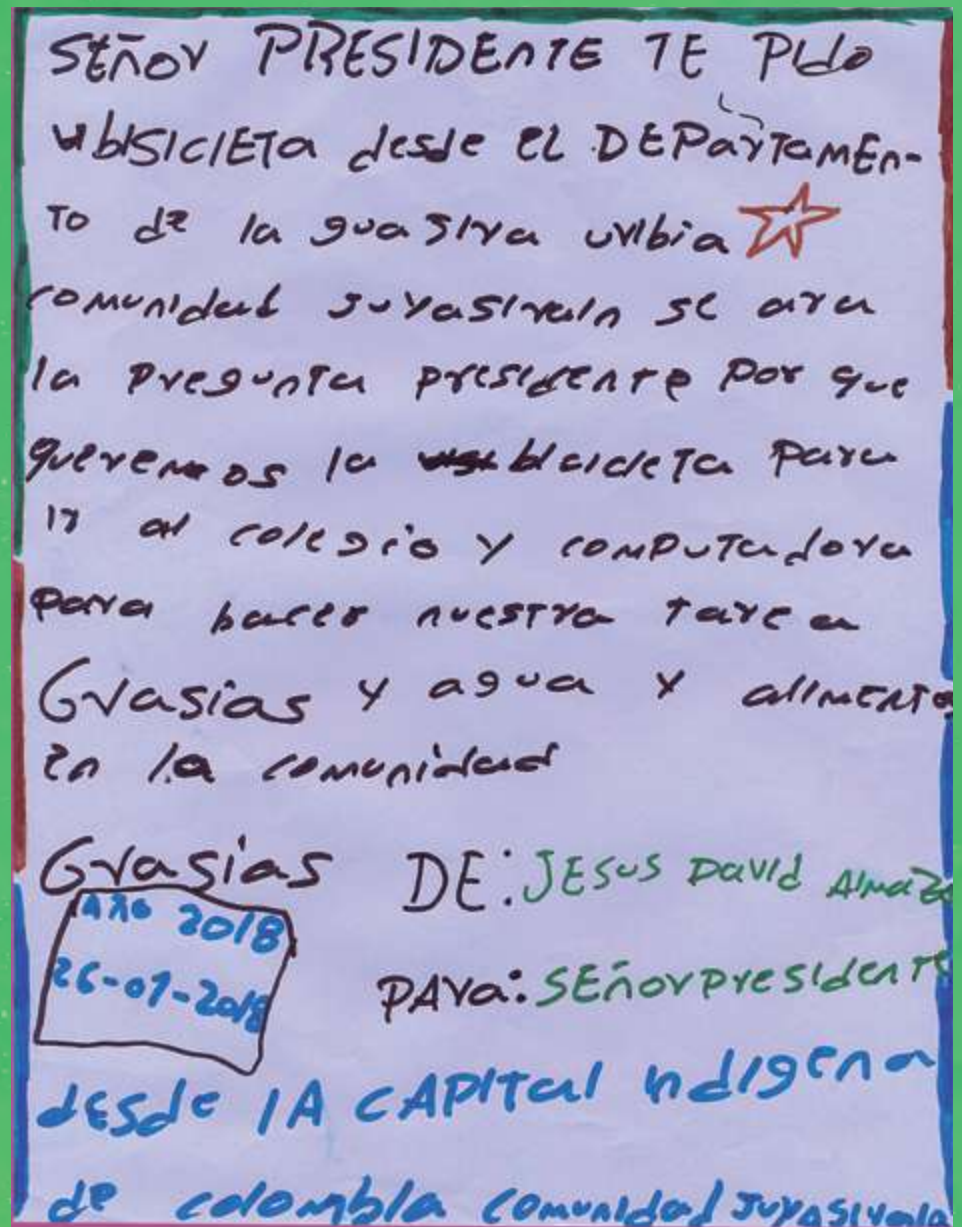 SEñOr PRESIDEnTE TE PIdo
ubISICIETa desde EL DEParTamEn-
TO de la guasira uribia
comunidad Juyasirain se ara
la PregunTa presidenTe Por que
queremos la bIcicleTa Para
ir al colegio Y comPuTadora
Para hacer nuesTra Tarea
Grasias Y agua Y alimenTo
En la comunidad
Grasias DE: JESus DavId Almazo
Año 2018
26-07-2018
PAra: SEñor presIdenTE
dEsde lA CAPITal IndIgena
de colombIa comunIdad Juyasirain